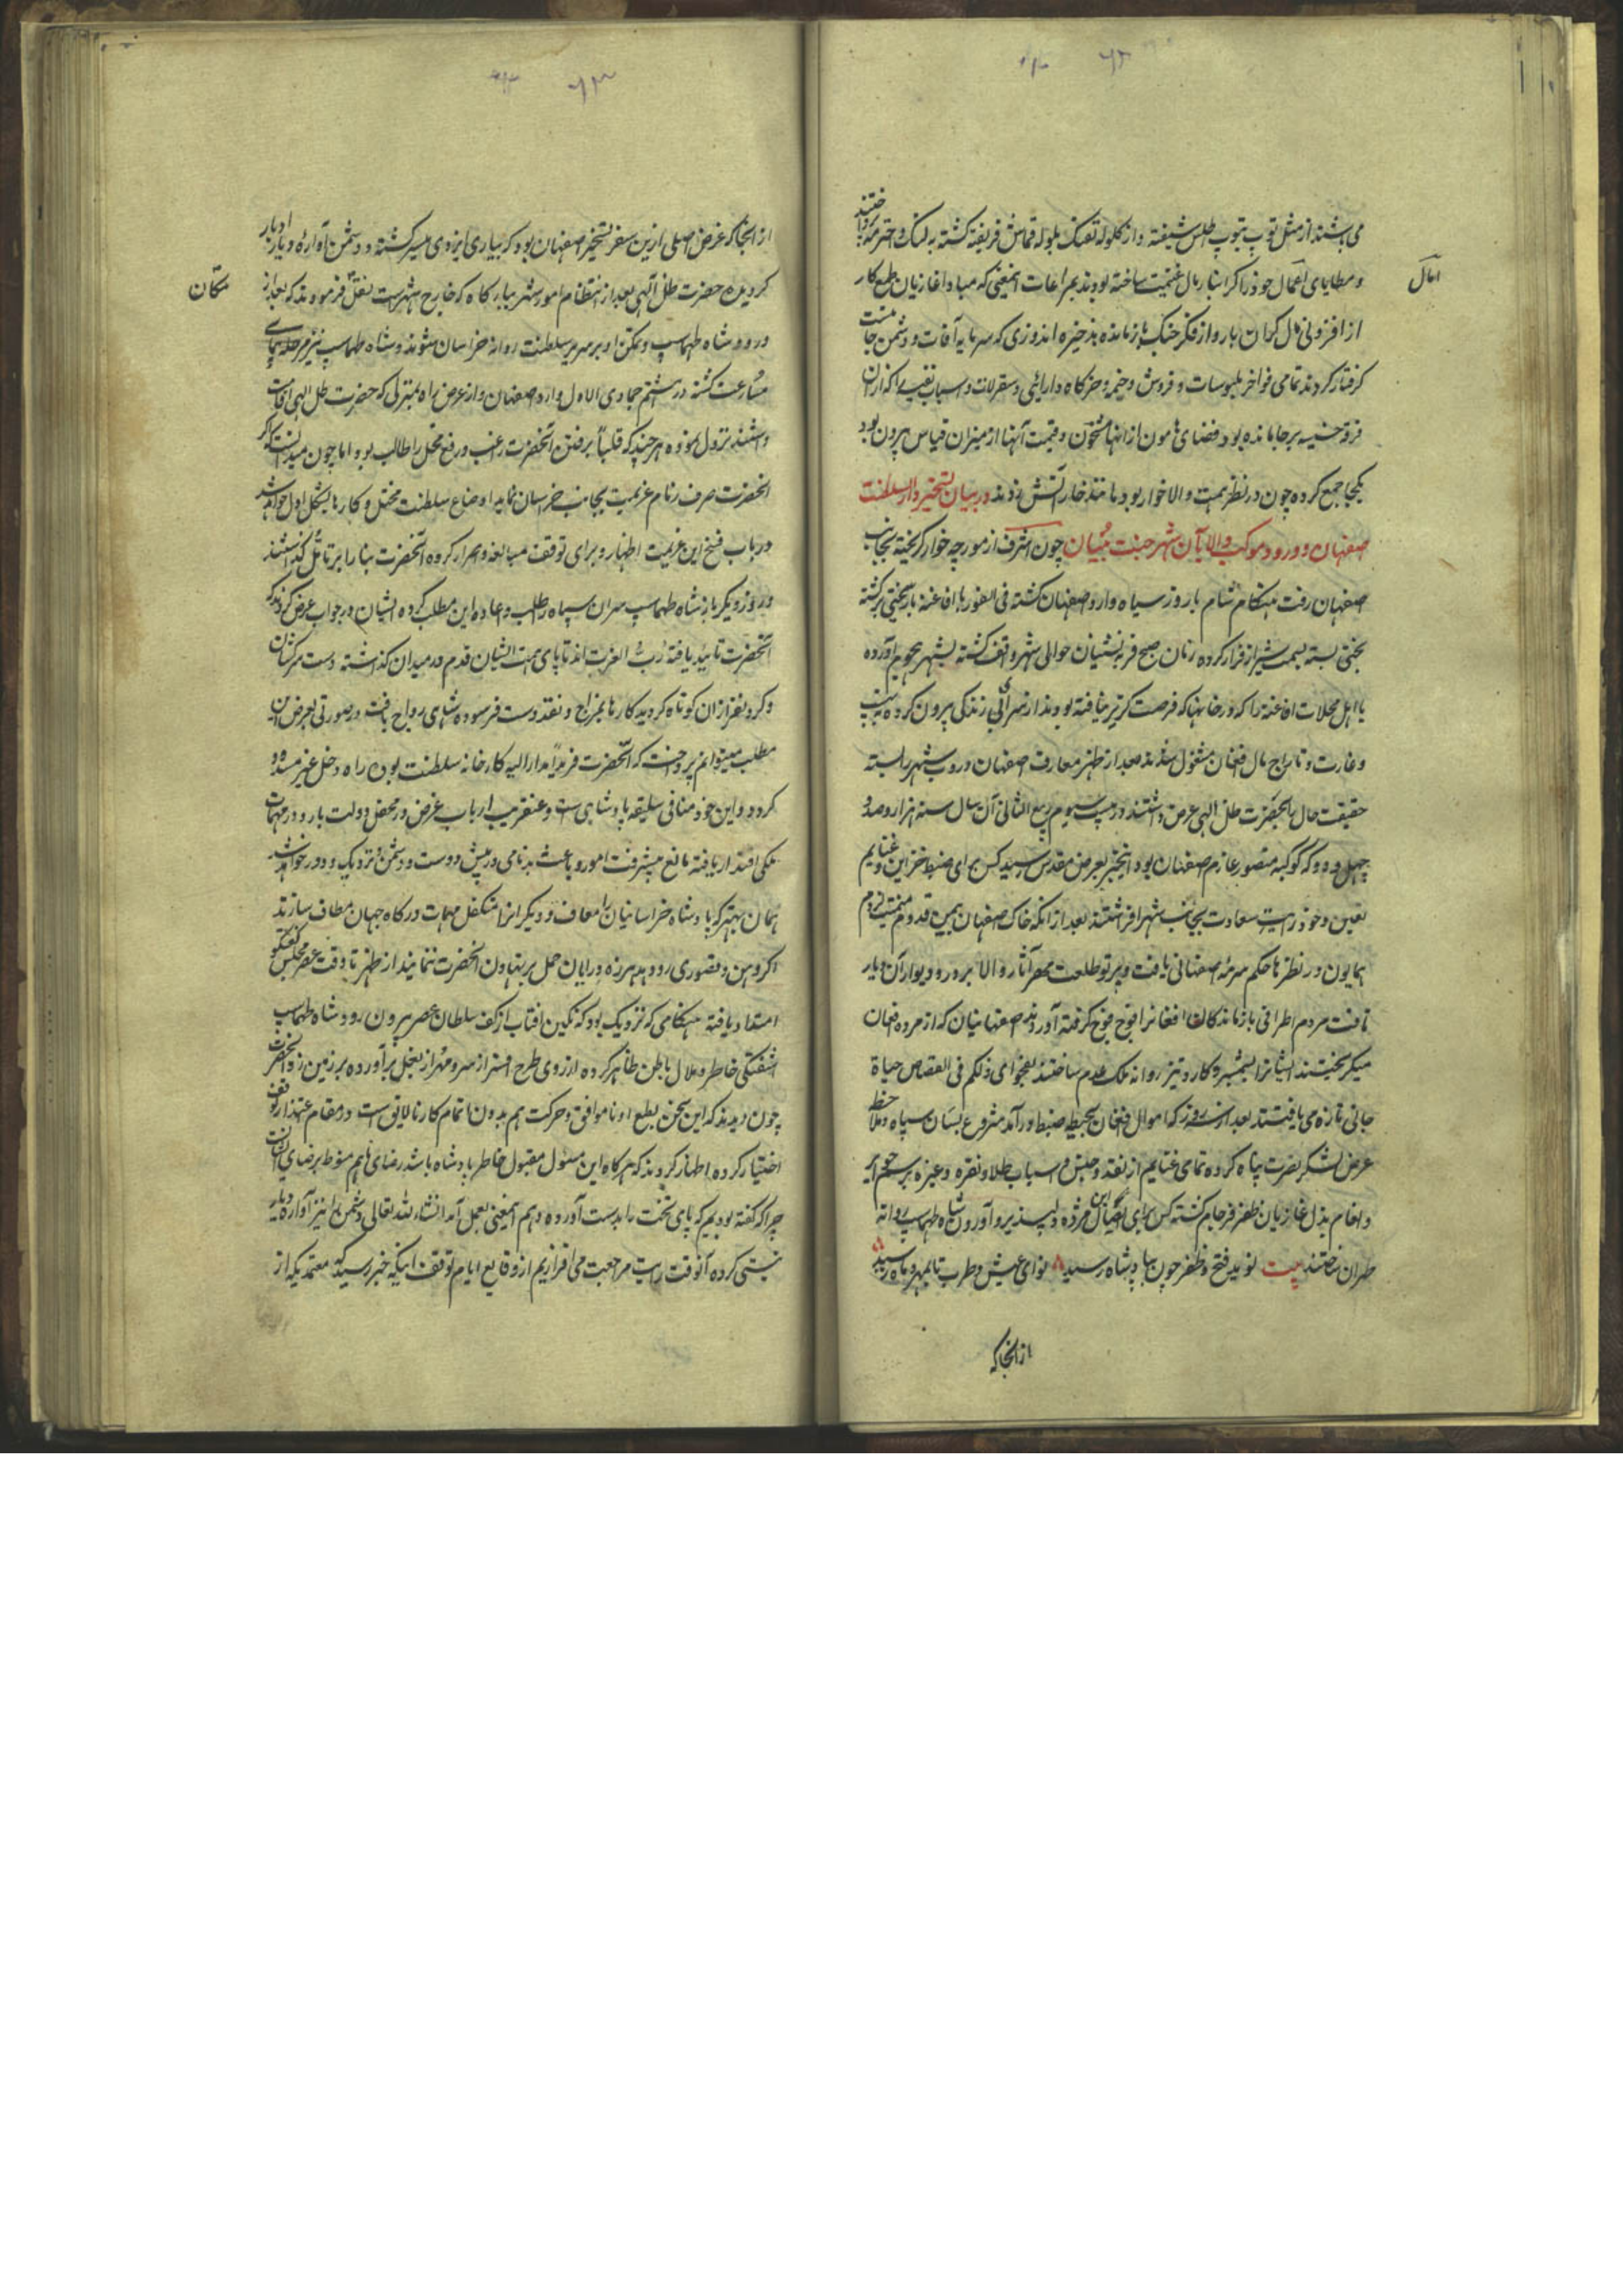 می باشند از مثل توپ بتوپ اطلس شیفته و از کلوله تفنک بلوله قماش فریفته کشته به لنک و اختر مه پرداختند
امال
و مطایای اعمال خود را کرانبار مال غنیمت ساخته بودند بمراعات اینمعنی که مبادا غازیان طمع کار
از افزونی مال کران بار و از فکر جنک بازمانده بذخیره اندوزی که سرمایه آفات و دشمن جانست
کرفتار کردند تمامی فواخر ملبوسات و فروش و خیمه و خرکاه دارائی و سقرلات و اسباب نفیسه را که ازان
فرقه خسیسه بر جا مانده بود فضای هامون از انها مشحون و قیمت آنها از میزان قیاس بیرون بود
یکجا جمع کرده چون در نظر همت والا خوار بود مانند خار آتش زدند در بیان تسخیر دارالسلطنت
صفهان و ورود موکب والا بآن شهر جنت بنیان چون اشرف از مورچه خوار کریخته بجانب
صفهان رفت هنکام شام با روز سیاه وارد اصفهان کشته فی الفور با افاغنه بار بختی برکشته
بختی بسته بسمت شیراز فرار کرده زنان صبح قریه نشینان حوالی شهر واقف کشته بشهر هجوم آورده
با اهل محلات افاغنه را که در خانها که فرصت کریز نیافته بودند از سرای زندکی بیرون کرده به نهب
و غارت و تاراج مال افغان مشغول شدند بعد از ظهر معارف اصفهان دروب شهر را بسته
حقیقت حال بحضرت ظل الهی عرضه داشتند در بیست سیوم ربیع الثانی آن سال سنه هزار و صد و
چهل و دو که کوکبه منصور عازم صفهان بود اینخبر بعرض مقدس رسید کس برای ضبط خزاین و غنایم
تعیین و خود رایت سعادت بجانب شهر افراشتند بعد از انکه خاک صفهان بیمن قدوم میمنت لزوم
همایون در نظرها حکم سرمه اصفهانی یافت و پرتو طلعت مهر آثار والا بر در و دیوار آن دیار
تافت مردم اطراف بازماندکان افغانرا فوج فوج کرفته آوردند صفهانیان که از مرده افغان
میکریختند ایشانرا بشمشیر و کارد تیز روانه ملک عدم ساختند بفحوای ولکم فی القصاص حیاة
جانی تازه می یافتند بعد از سه روز که اموال افغان بحیطه ضبط در آمد شروع بسان سپاه و ملاحظه
عرض لشکر نصرت پناه کرده تمامی غنایم از نقد و جنس و اسباب طلا و نقره و غیره برسم جوایز
و انعام بذل غازیان ظفر فرجام کشته کس برای ایصال این مژده دلپسند و آوردن شاه طهماسب روانه
طهران ساختند بیت نوید فتح و ظفر چون بپادشاه رسید نوای عیش و طرب تا بمهر و ماه رسید
از انجا که
از انجا که غرض اصلی ازین سفر تسخیر اصفهان بود که بیاری ایزدی میسر کشته و دشمن آواره دیار ادبار
مکان
کردیده حضرت ظل الهی بعد از انتظام امور شهر ببارکاه که خارج شهرست نقل فرمودند که بعد از
ورود شاه طهماسب و تمکن او بر سریر سلطنت روانه خراسان شوند و شاه طهماسب نیز مرحله پیمای
مسارعت کشته در هشتم جمادی الاول وارد اصفهان و از عرض راه بمنزلی که حضرت ظل الهی اقامت
داشتند نزول نموده هر چند که قلباً برفتن آنحضرت راغب و رفع مخل را طالب بود اما چون میدانست که اکر
انحضرت صرف زمام عزیمت بجانب خراسان نماید اوضاع سلطنت مختل و کارها بشکل اول خواهد شد
در باب فسخ این عزیمت اظهار و برای توقف مبالغه و اصرار کرده آنحضرت بنا را بر تامل کذاشتند
و روز دیکر باز شاه طهماسب سران سپاه را طلب و اعاده این مطلب کرده ایشان در جواب عرض کردند که
آنحضرت تایید یافته رب العزت اند تا پای همت ایشان قدم در میدان کذاشته دست سرکشان
و کردنفرازان کوتاه کردید کارها بمزاج و نقد دست فرسوده شاهی رواج یافت در صورتی بعرض این
مطلب میتوانیم پرداخت که آنحضرت فرید مدار الیه کارخانه سلطنت بوده راه دخل غیر مسدود
کردد و این خود منافی سلیقه پادشاهی است و عنقریب ارباب غرض در محفل دولت بار و در مهمات
ملکی اقتدار یافته مانع پیشرفت امور و باعث بدنامی در پیش دوست و دشمن و نزدیک و دور خواهد شد
همان بهتر که پادشاه خراسانیان را معاف و دیکرانرا متکفل مهمات درکاه جهان مطاف سازند
اکر وهن و قصوری رو دهد هرزه درایان حمل بر تهاون انحضرت ننمایند از ظهر تا وقت عصر مجلس کفتکو
امتداد یافته هنکامی که نزدیک بود که نکین افتاب از کف سلطان عصر بیرون رود شاه طهماسب
اشفتکی خاطر و ملال باطن ظاهر کرده از روی طرح افسر از سر و مهر از بغل برآورده بر زمین زد انحضرت
چون دیدند که این سخن بطبع او ناموافق و حرکت هم بدون اتمام کار نالایق است در مقام اعتذار توقف
اختیار کرده اظهار کردند که هرکاه این مسئول مقبول خاطر پادشاه باشد رضای ما هم منوط برضای ایشان است
چرا که کفته بودیم که پای تخت را بدست آورده دهم اینمعنی بعمل آمد انشاء الله تعالی دشمن را نیز آواره دیار
نیستی کرده آنوقت رایت مراجعت می افرازیم از وقایع ایام توقف اینکه خبر رسید که معتمد یکه از